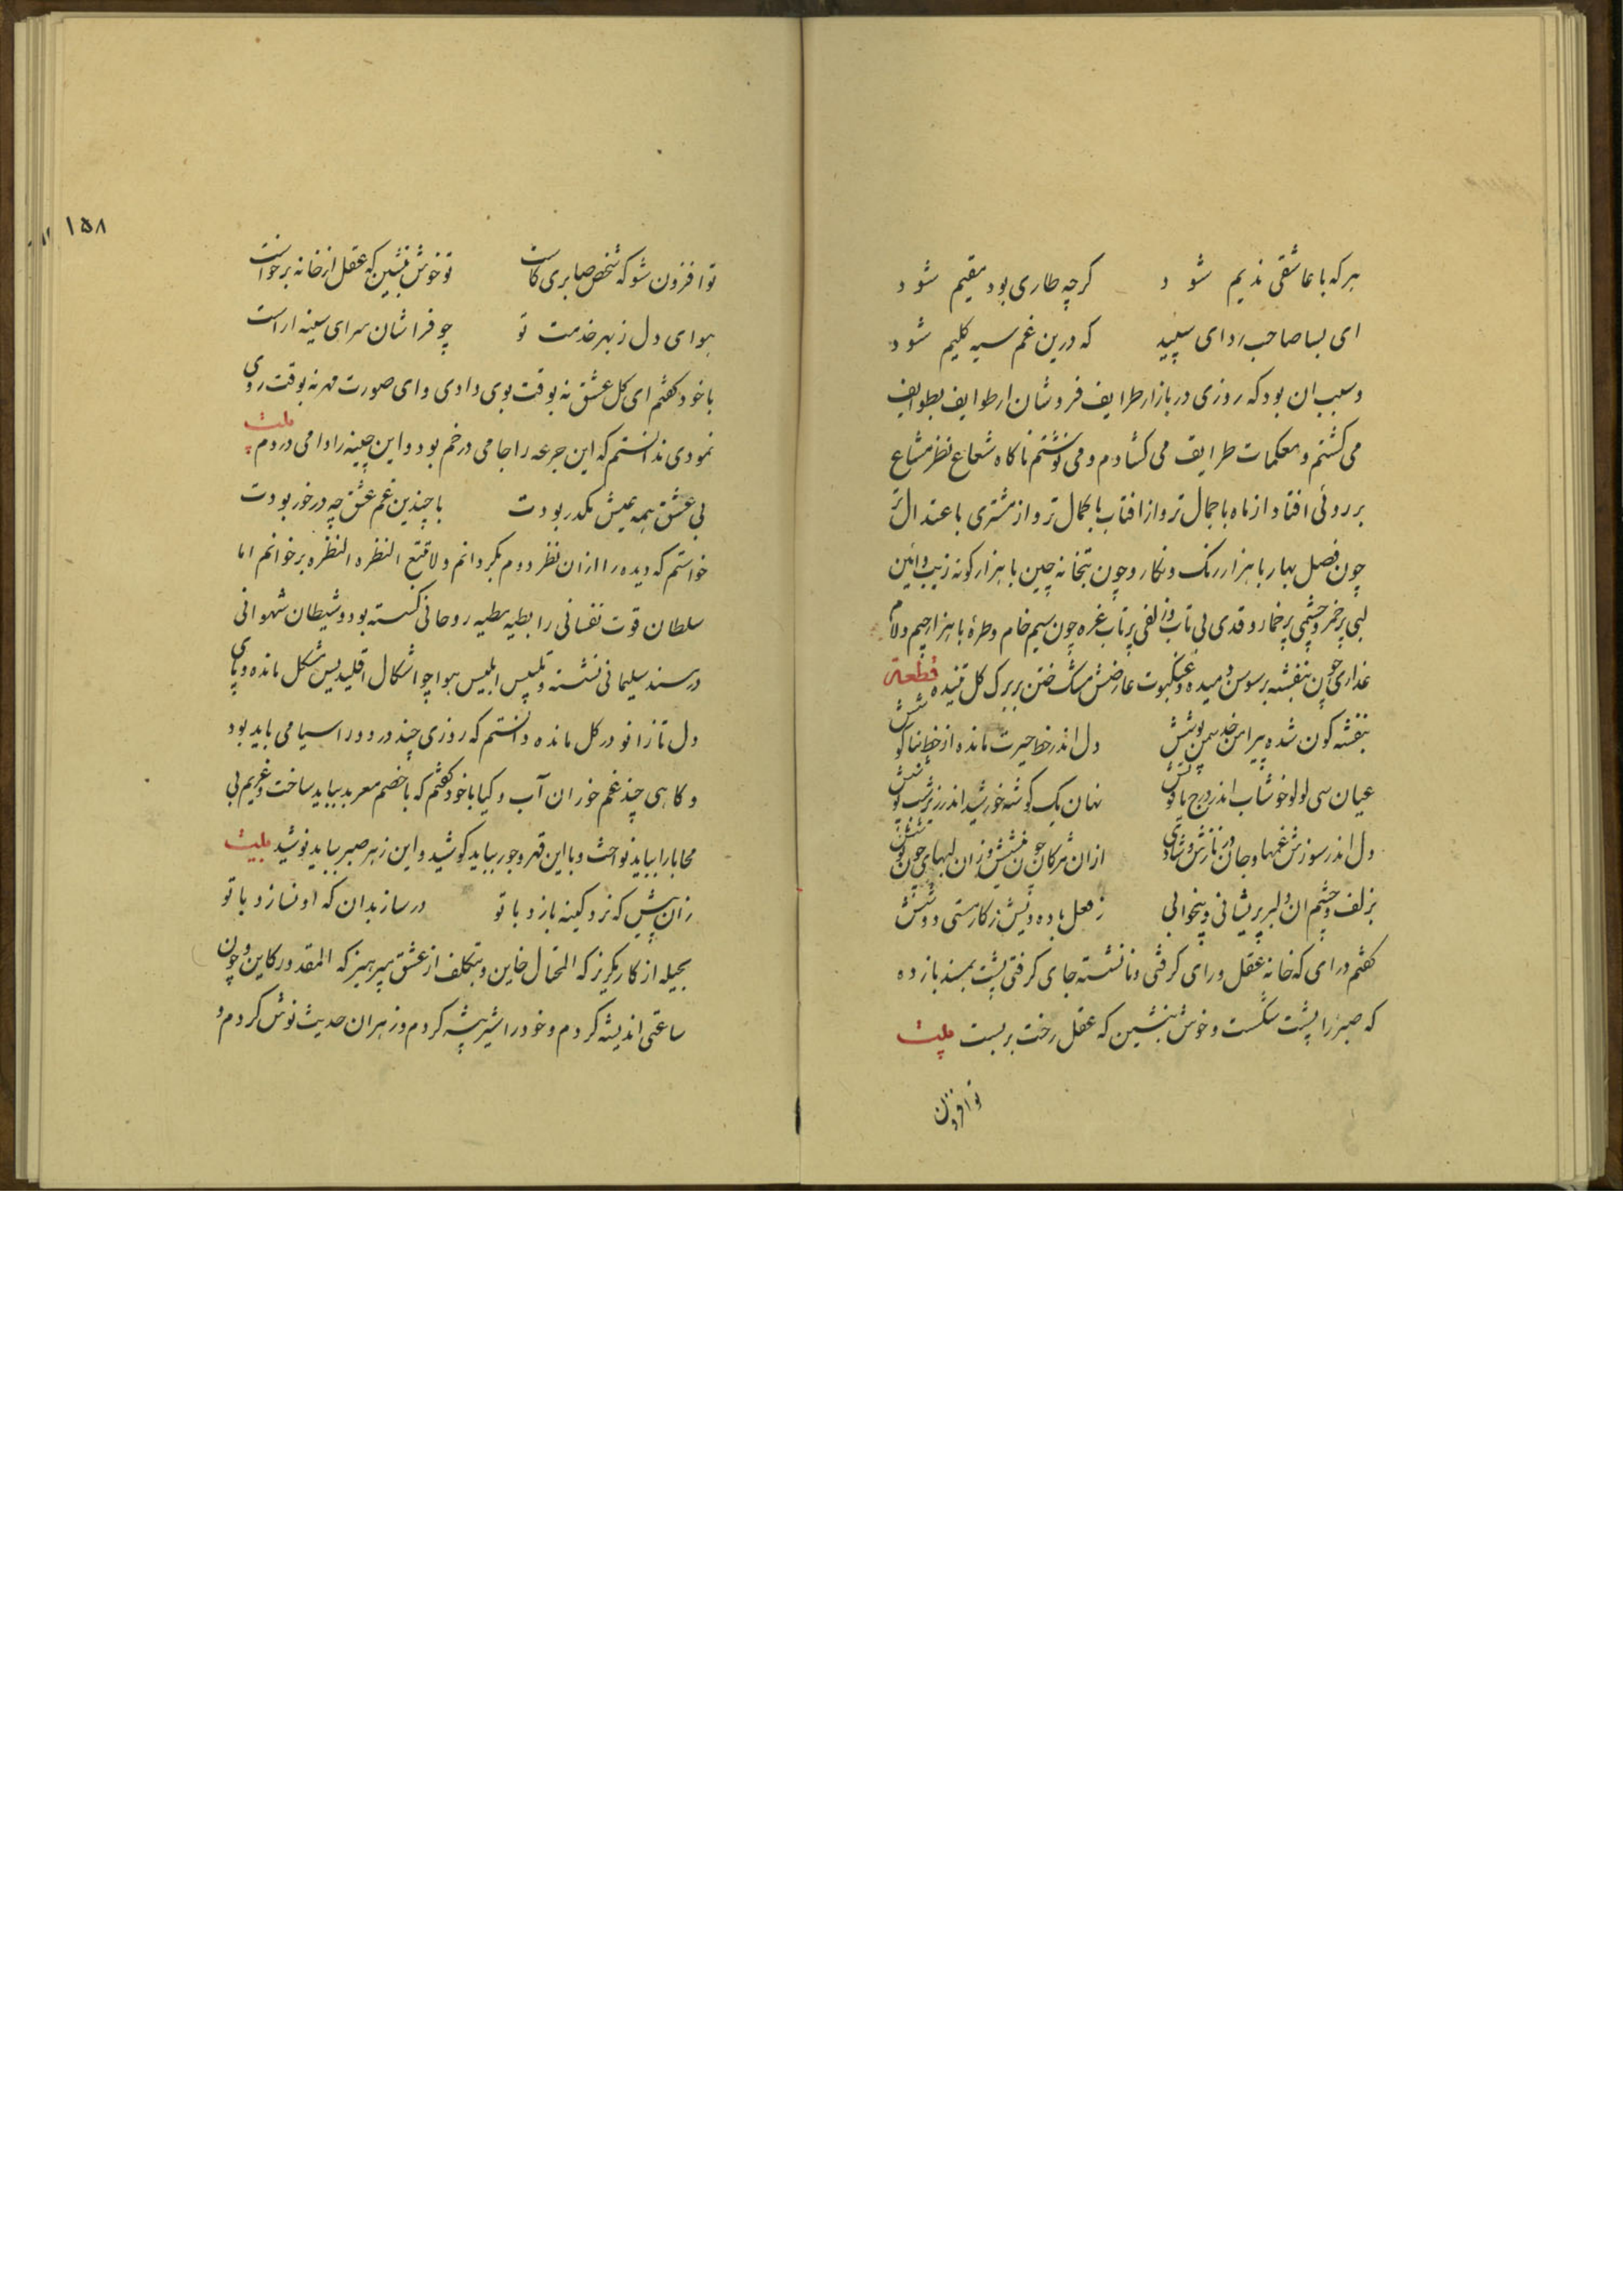 هرکه با عاشقی ندیم شود کرچه طاری بود مقیم شود
ای بسا صاحب ردای سپید که درین غم سیه کلیم شود
و سبب ان بود که روزی در بازار طرایف فروشان از طوایف بطوایف
می کشتم و معکمات طرایف می کشادم و می نوشتم ناکاه شعاع نظر مشاع
بر روئی افتاد از ماه باجمال تر و از افتاب باکمال تر و از مشتری باعتدال تر
چون فصل بهار با هزار رنک و نکار و چون بتخانه چین با هزار کونه زیب و آئین
لبی پرخمر و چشمی پرخمار و قدی بی تاب و زلفی پرتاب غره چون سیم خام و طرهٔ با هزار جیم و لام
عذاری چون بنفشه بر سوسن دمیده و عنکبوت عارضش مشک ختن بر برک کل تنیده قطعة
بنفشه کون شده پیرامن خد سمن پوشش دل اندر خط حیرت مانده از خط بناکوشش
عیان سی لولو خوشاب اندر درج یاقوتش نهان یک کوشه خورشید اندر زیر شب پوشش
دل اندر سوزش غمها و جان در نازش و شادی ازان مژکان چون نیشش وزان لبهای چون نوشش
بزلف و چشم ان دلبر پریشانی و بیخوابی ز فعل باده دوشین ز کار مستی دوشش
کفتم درای که خانه عقل ورای کرفتی و نانشسته جای کرفتی پشت بمسند باز ده
که صبر را پشت شکست و خوش بنشین که عقل رخت بربست بیت
تو افزون
۱۵۸
تو افزون شو که شخص صابری کاست تو خوش بنشین که عقل از خانه برخواست
هوای دل ز بهر خدمت تو چو فراشان سرای سینه اراست
با خود کفتم ای کل عشق نه بوقت بوی دادی و ای صورت مهر نه بوقت روی
نمودی ندانستم که این جرعه را جامی در خم بود و این چینه را دامی در دم بیت
بی عشق همه عیش مکدر بودت با چندین غم عشق چه درخور بودت
خواستم که دیده را ازان نظر دوم بکردانم و لاتتبع النظره النظره برخوانم اما
سلطان قوت نفسانی رابطه مطیه روحانی کسسته بود و شیطان شهوانی
در مسند سلیمانی نشسته و تلبیس ابلیس هوا چو اشکال اقلیدیس مشکل مانده و پای
دل تا زانو در کل مانده دانستم که روزی چند در دور اسیا می باید بود
و کاهی چند غم خوران آب و کیا با خود کفتم که با خصم معربد بباید ساخت و غریم بی
محابا را بباید نواخت و با این قهر و جور بباید کوشید و این زهر صبر بباید نوشید بیت
زان پیش که نرد کینه بازد با تو در ساز بدان که او نسازد با تو
بحیله از کار مکریز که المحتال خاین و بتکلف از عشق مپرهیز که المقدور کاین و چون
ساعتی اندیشه کردم و خود را شیر بیشه کردم و زهر ان حدیث نوش کردم و